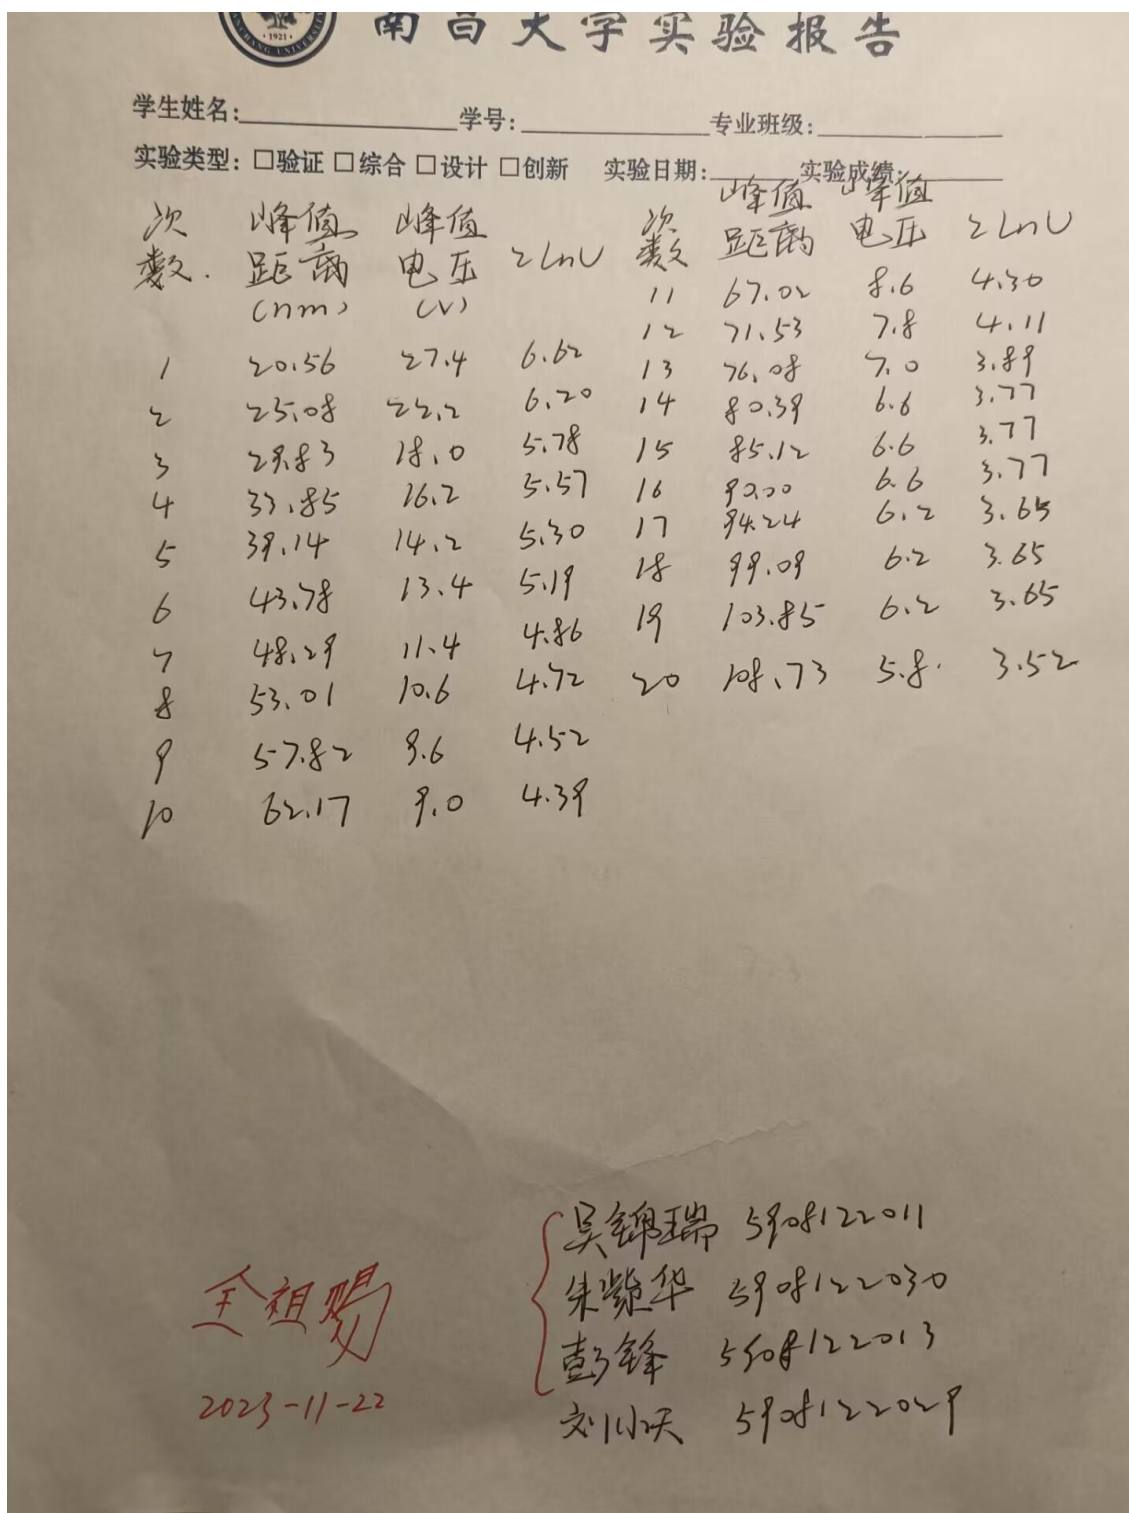 ·1921·
南昌大学实验报告
学生姓名: 学号: 专业班级:
实验类型: □验证 □综合 □设计 □创新 实验日期: 实验成绩:
次数. 峰值距离(nm) 峰值电压(V) 2LnU
1 20.56 27.4 6.62
2 25.08 22.2 6.20
3 29.83 18.0 5.78
4 33.85 16.2 5.57
5 39.14 14.2 5.30
6 43.78 13.4 5.19
7 48.29 11.4 4.86
8 53.01 10.6 4.72
9 57.82 9.6 4.52
10 62.17 9.0 4.39
次数 峰值距离 峰值电压 2LnU
11 67.02 8.6 4.30
12 71.53 7.8 4.11
13 76.08 7.0 3.89
14 80.39 6.6 3.77
15 85.12 6.6 3.77
16 90.00 6.6 3.77
17 94.24 6.2 3.65
18 99.09 6.2 3.65
19 103.85 6.2 3.65
20 108.73 5.8 3.52
吴锦瑞 5908122011
朱紫华 5908122030
彭锋 5908122013
刘小天 5908122029
全祖赐
2023-11-22